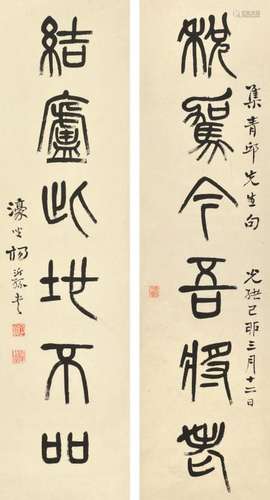 稅駕今吾將老
集青邱先生句 光緒己卯三月十二日
結廬此地不
濠叟楊沂孫